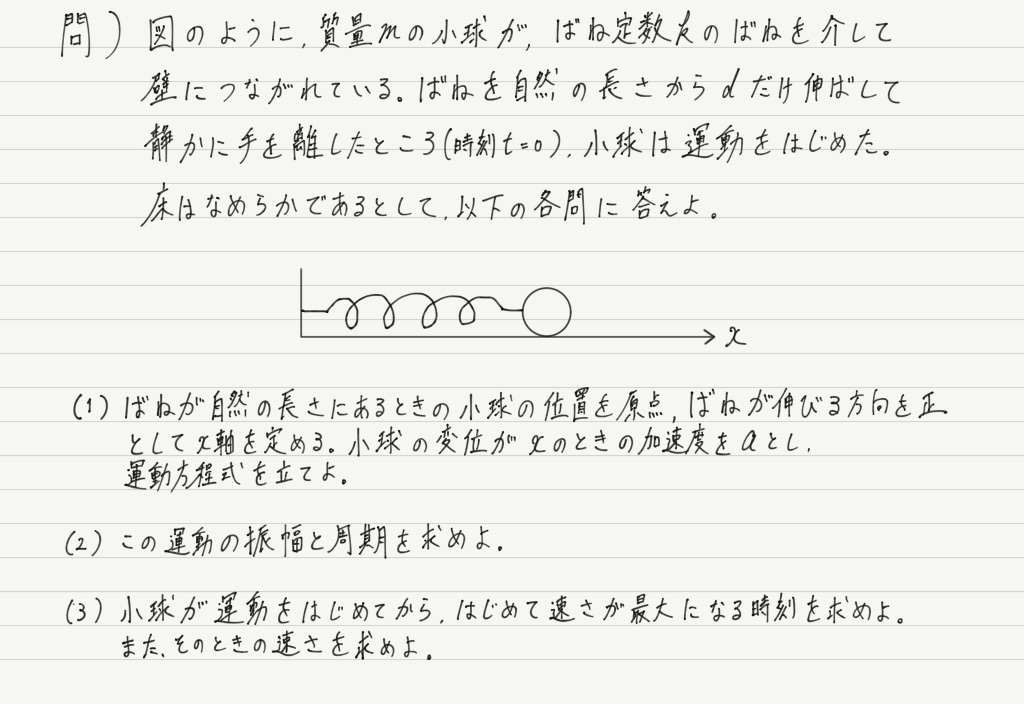 問) 図のように、質量mの小球が、ばね定数kのばねを介して
壁につながれている。ばねを自然の長さからdだけ伸ばして
静かに手を離したところ(時刻t=0)、小球は運動をはじめた。
床はなめらかであるとして、以下の各問に答えよ。
x
(1) ばねが自然の長さにあるときの小球の位置を原点、ばねが伸びる方向を正
としてx軸を定める。小球の変位がxのときの加速度をaとし、
運動方程式を立てよ。
(2) この運動の振幅と周期を求めよ。
(3) 小球が運動をはじめてから、はじめて速さが最大になる時刻を求めよ。
また、そのときの速さを求めよ。